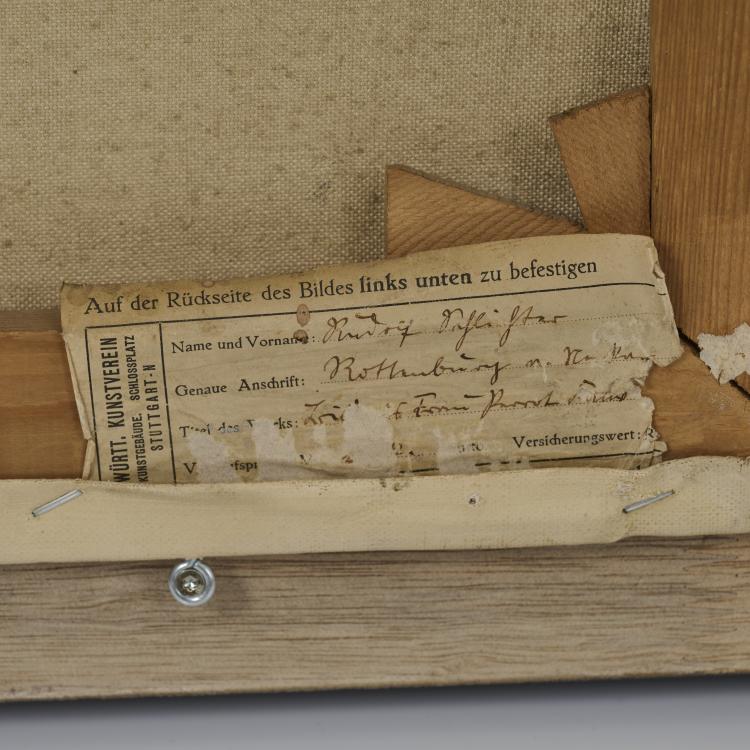 Auf der Rückseite des Bildes links unten zu befestigen
WÜRTT. KUNSTVEREIN
KUNSTGEBÄUDE, SCHLOSSPLATZ
STUTTGART-N
Name und Vorname: Rudolf Schlichter
Genaue Anschrift: Rottenburg a. Neckar
Titel des Werks: Frau
Versicherungswert: